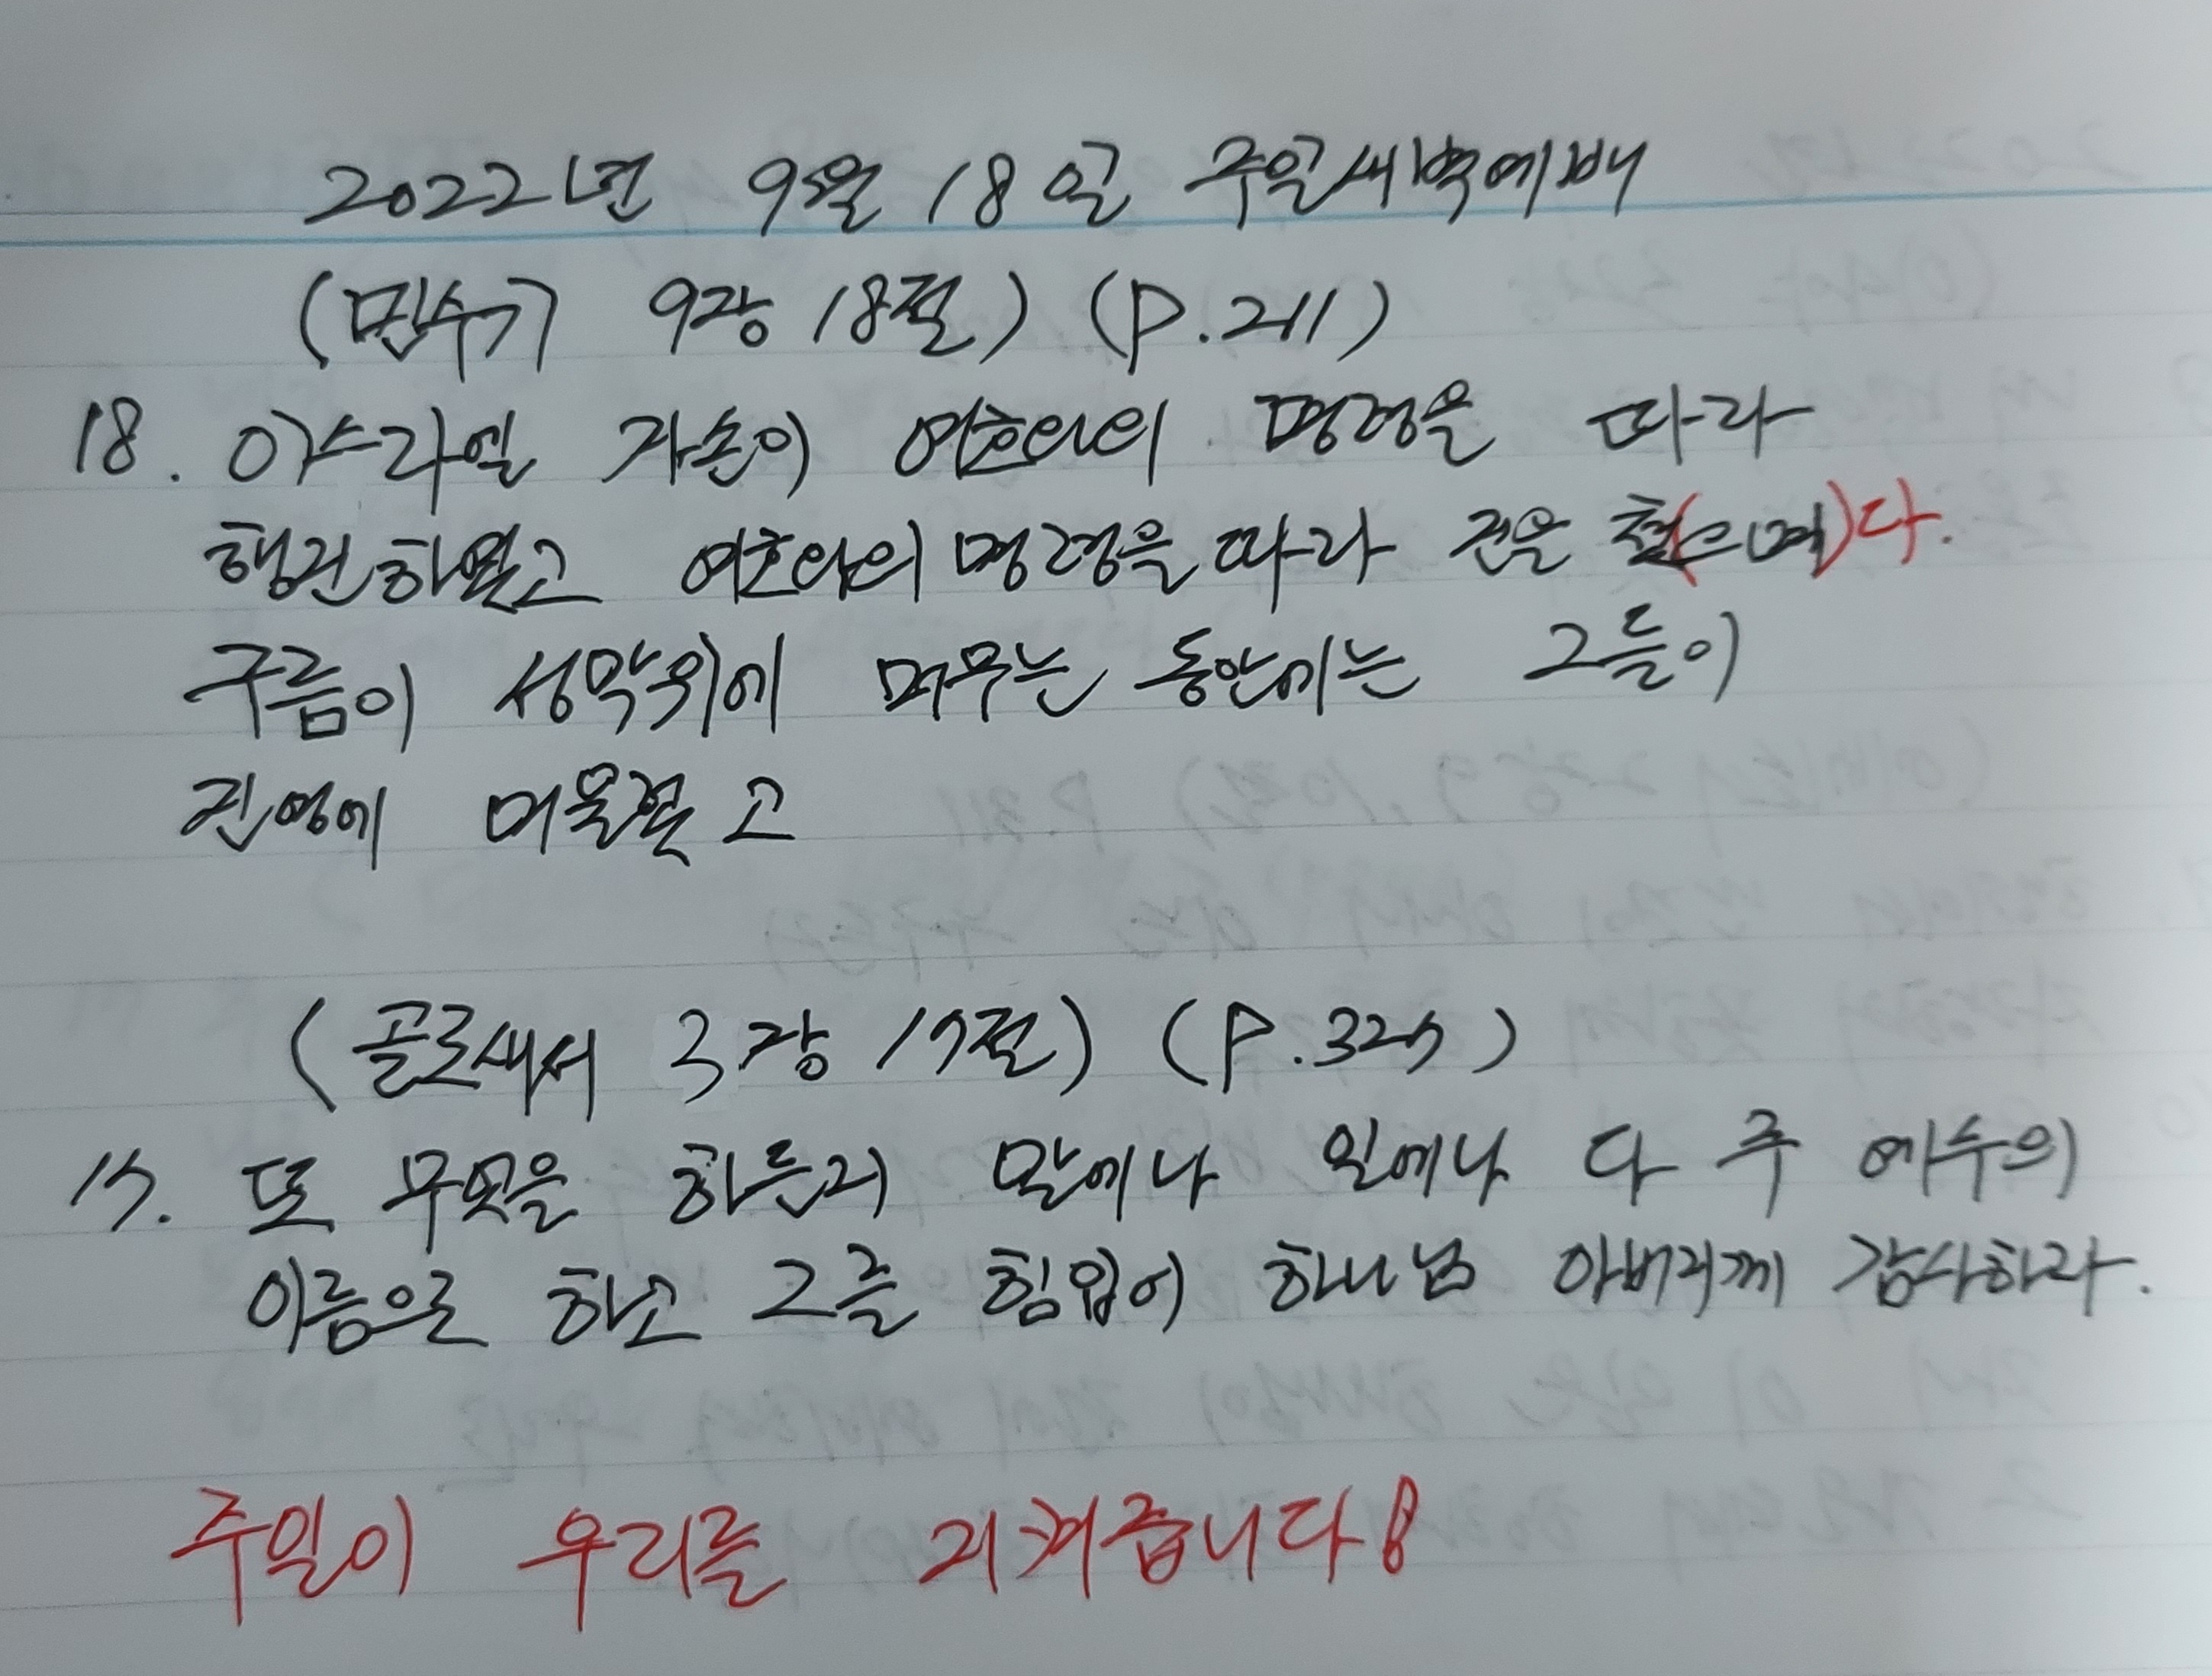 2022년 9월 18일 주일새벽예배
(민수기 9장 18절) (P.211)
18. 이스라엘 자손이 여호와의 명령을 따라
행진하였고 여호와의 명령을 따라 진을 쳤(으며)다.
구름이 성막위에 머무는 동안에는 그들이
진영에 머물렀고
(골로새서 3장 17절) (P.327)
17. 또 무엇을 하든지 말에나 일에나 다 주 예수의
이름으로 하고 그를 힘입어 하나님 아버지께 감사하라.
주일이 우리를 지켜줍니다!